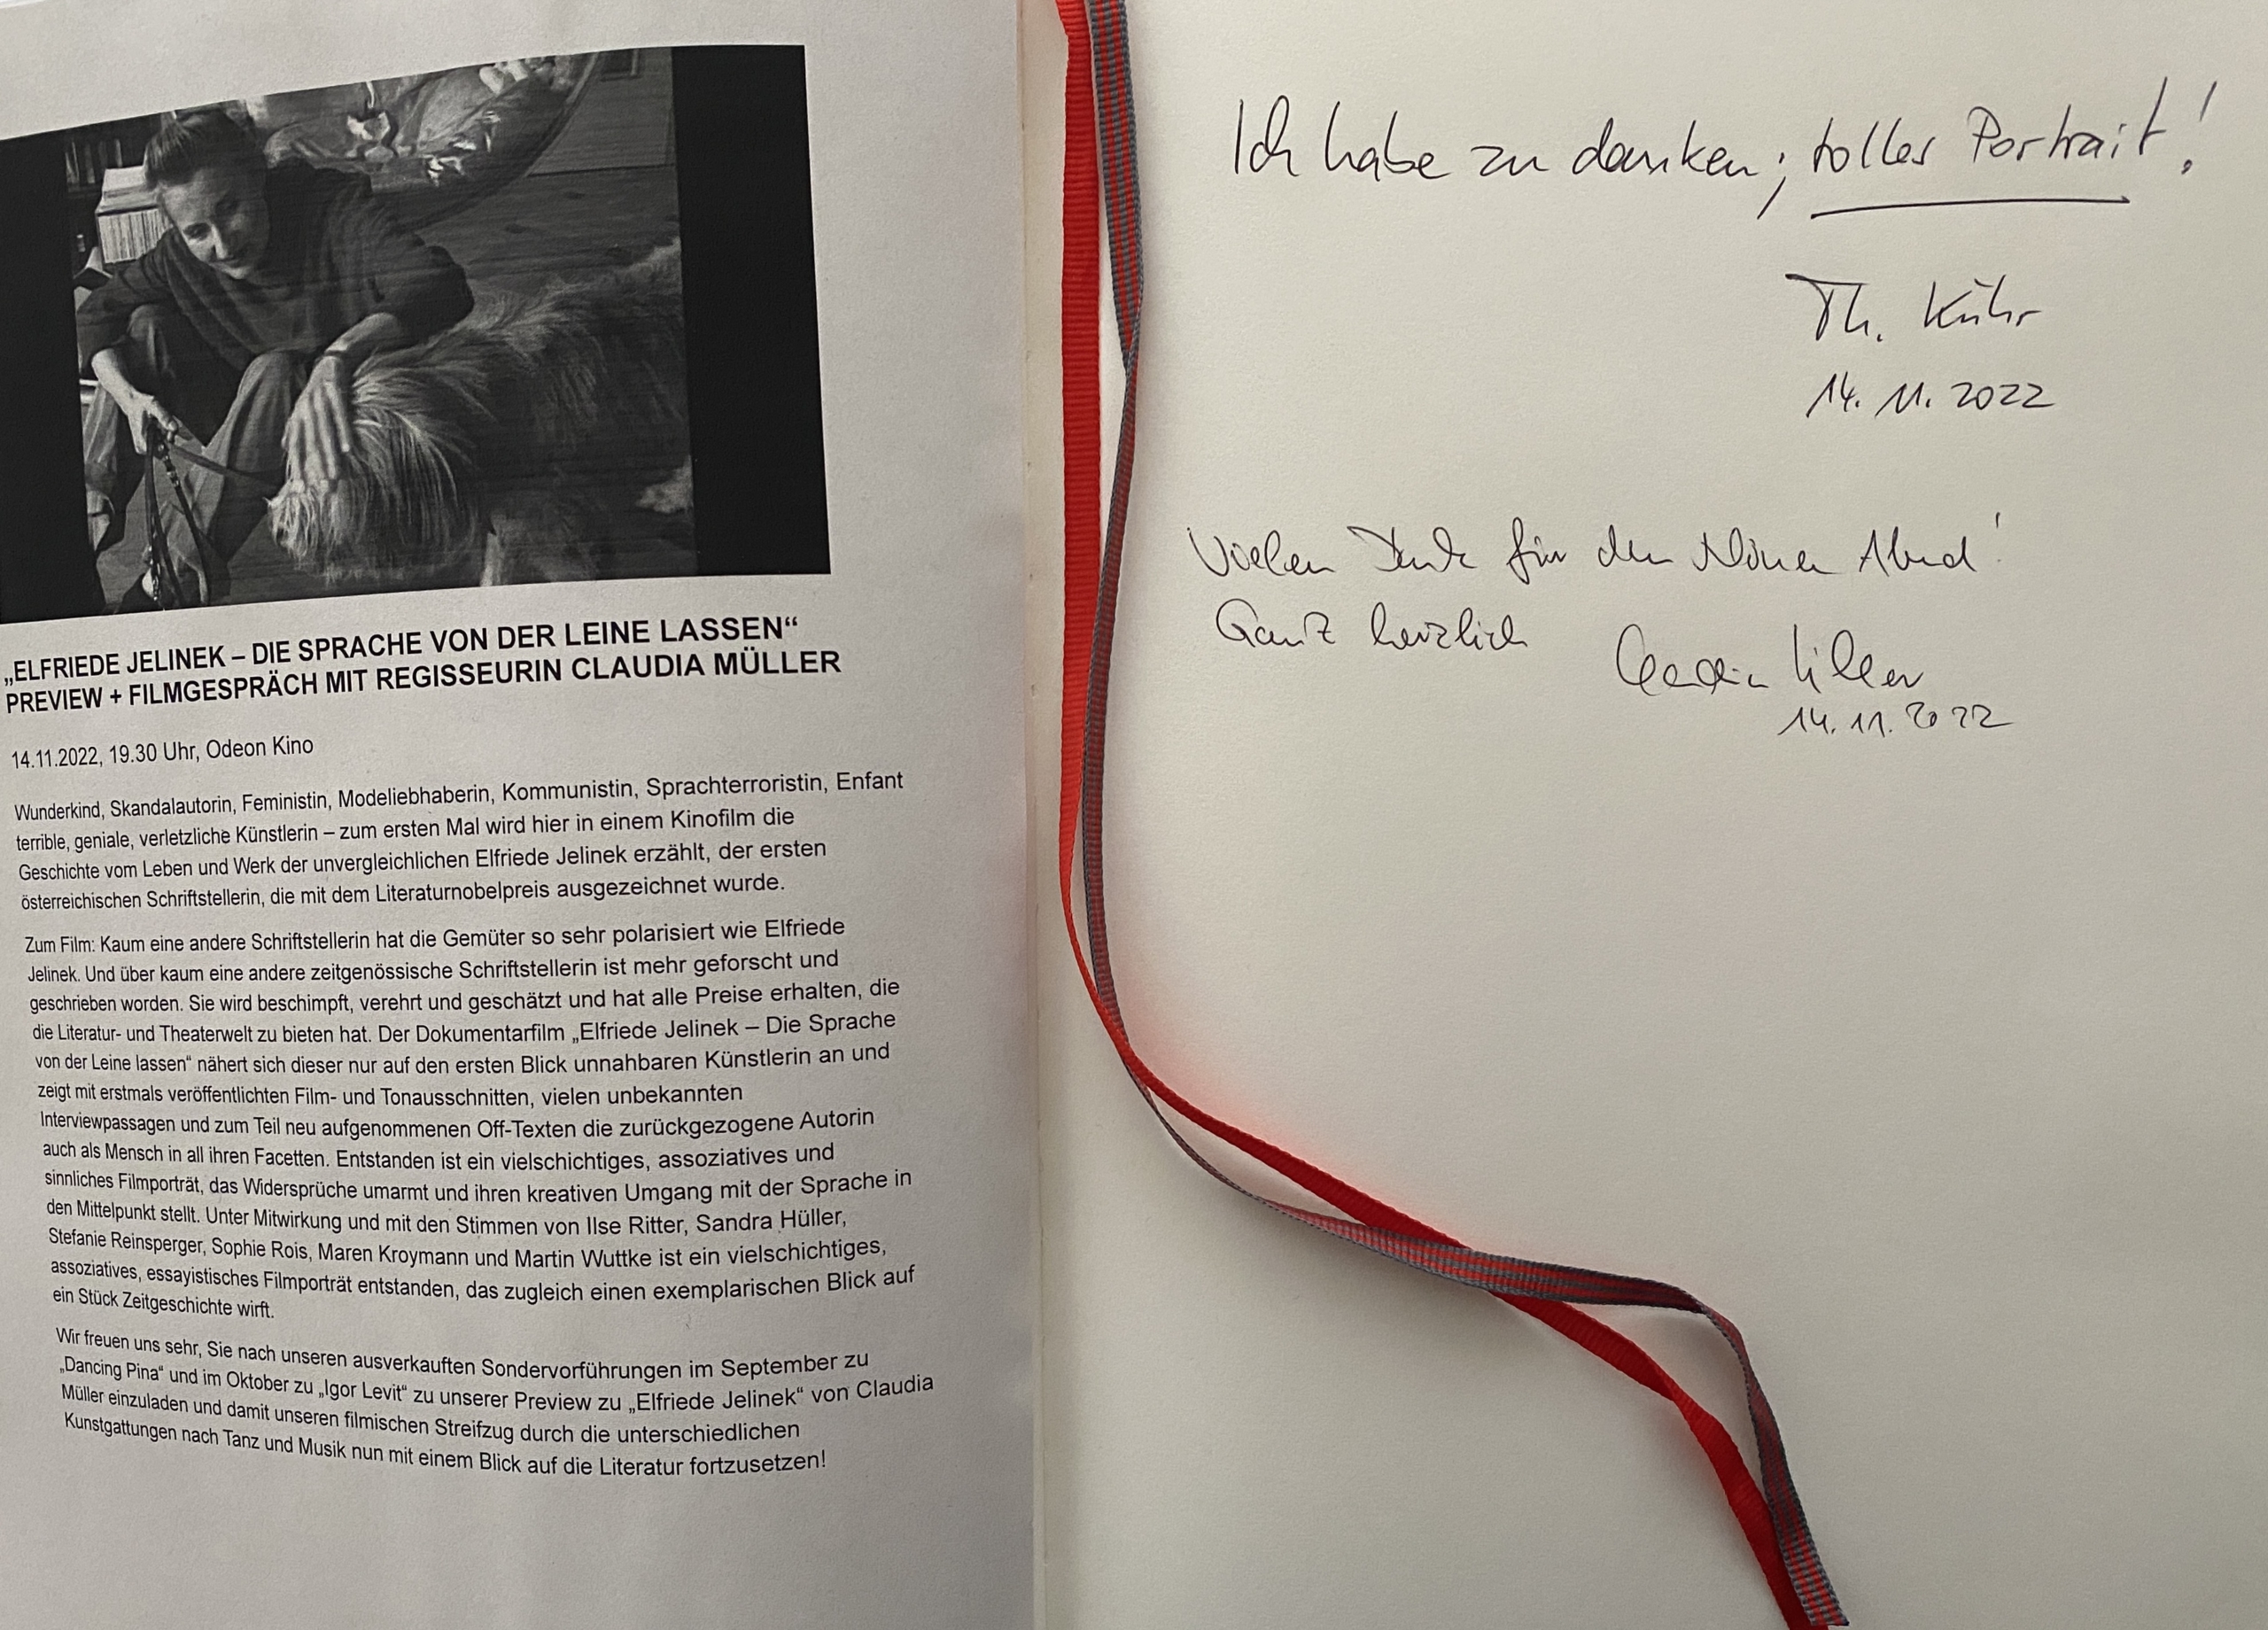 „ELFRIEDE JELINEK – DIE SPRACHE VON DER LEINE LASSEN“
PREVIEW + FILMGESPRÄCH MIT REGISSEURIN CLAUDIA MÜLLER
14.11.2022, 19.30 Uhr, Odeon Kino
Wunderkind, Skandalautorin, Feministin, Modeliebhaberin, Kommunistin, Sprachterroristin, Enfant
terrible, geniale, verletzliche Künstlerin – zum ersten Mal wird hier in einem Kinofilm die
Geschichte vom Leben und Werk der unvergleichlichen Elfriede Jelinek erzählt, der ersten
österreichischen Schriftstellerin, die mit dem Literaturnobelpreis ausgezeichnet wurde.
Zum Film: Kaum eine andere Schriftstellerin hat die Gemüter so sehr polarisiert wie Elfriede
Jelinek. Und über kaum eine andere zeitgenössische Schriftstellerin ist mehr geforscht und
geschrieben worden. Sie wird beschimpft, verehrt und geschätzt und hat alle Preise erhalten, die
die Literatur- und Theaterwelt zu bieten hat. Der Dokumentarfilm „Elfriede Jelinek – Die Sprache
von der Leine lassen“ nähert sich dieser nur auf den ersten Blick unnahbaren Künstlerin an und
zeigt mit erstmals veröffentlichten Film- und Tonausschnitten, vielen unbekannten
Interviewpassagen und zum Teil neu aufgenommenen Off-Texten die zurückgezogene Autorin
auch als Mensch in all ihren Facetten. Entstanden ist ein vielschichtiges, assoziatives und
sinnliches Filmporträt, das Widersprüche umarmt und ihren kreativen Umgang mit der Sprache in
den Mittelpunkt stellt. Unter Mitwirkung und mit den Stimmen von Ilse Ritter, Sandra Hüller,
Stefanie Reinsperger, Sophie Rois, Maren Kroymann und Martin Wuttke ist ein vielschichtiges,
assoziatives, essayistisches Filmporträt entstanden, das zugleich einen exemplarischen Blick auf
ein Stück Zeitgeschichte wirft.
Wir freuen uns sehr, Sie nach unseren ausverkauften Sondervorführungen im September zu
„Dancing Pina“ und im Oktober zu „Igor Levit“ zu unserer Preview zu „Elfriede Jelinek“ von Claudia
Müller einzuladen und damit unseren filmischen Streifzug durch die unterschiedlichen
Kunstgattungen nach Tanz und Musik nun mit einem Blick auf die Literatur fortzusetzen!
Ich habe zu danken; tolles Portrait!
Th. Kühr
14.11.2022
Vielen Dank für den schönen Abend!
Ganz herzlich Claudia Müller
14.11.2022